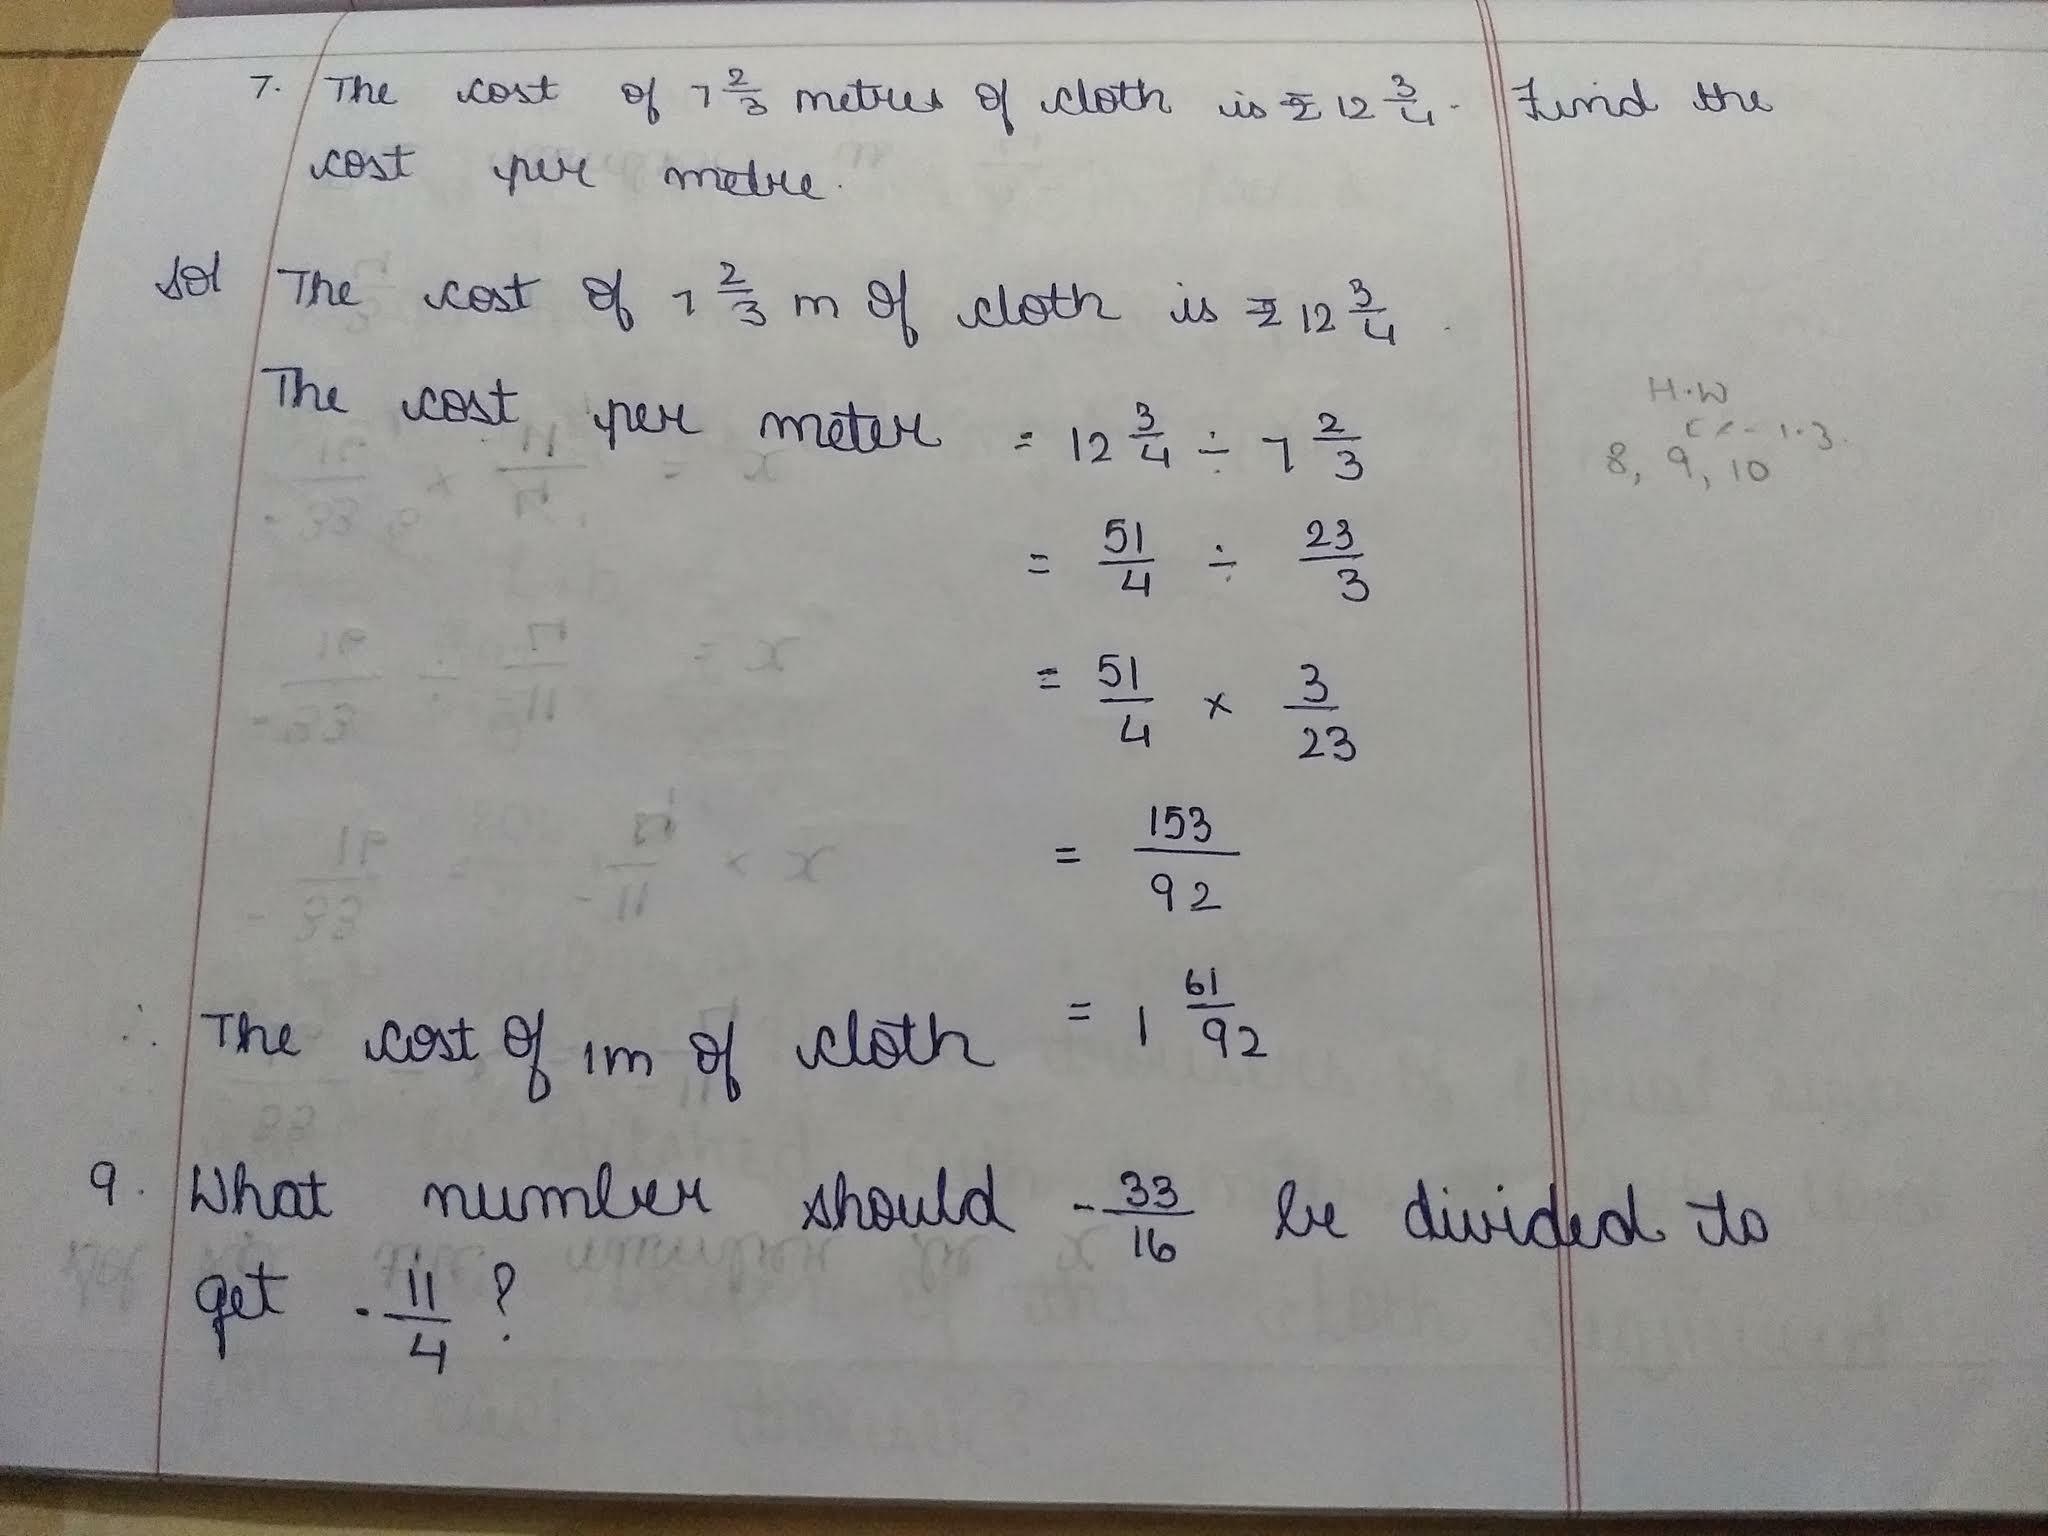 7. The cost of 7 2/3 metres of cloth is ₹ 12 3/4. Find the
cost per metre.
Sol The cost of 7 2/3 m of cloth is ₹ 12 3/4.
The cost per meter = 12 3/4 ÷ 7 2/3
H.W
Ex-1.3.
8, 9, 10
= 51/4 ÷ 23/3
= 51/4 × 3/23
= 153/92
∴ The cost of 1m of cloth = 1 61/92
9. What number should -33/16 be divided to
get -11/4 ?